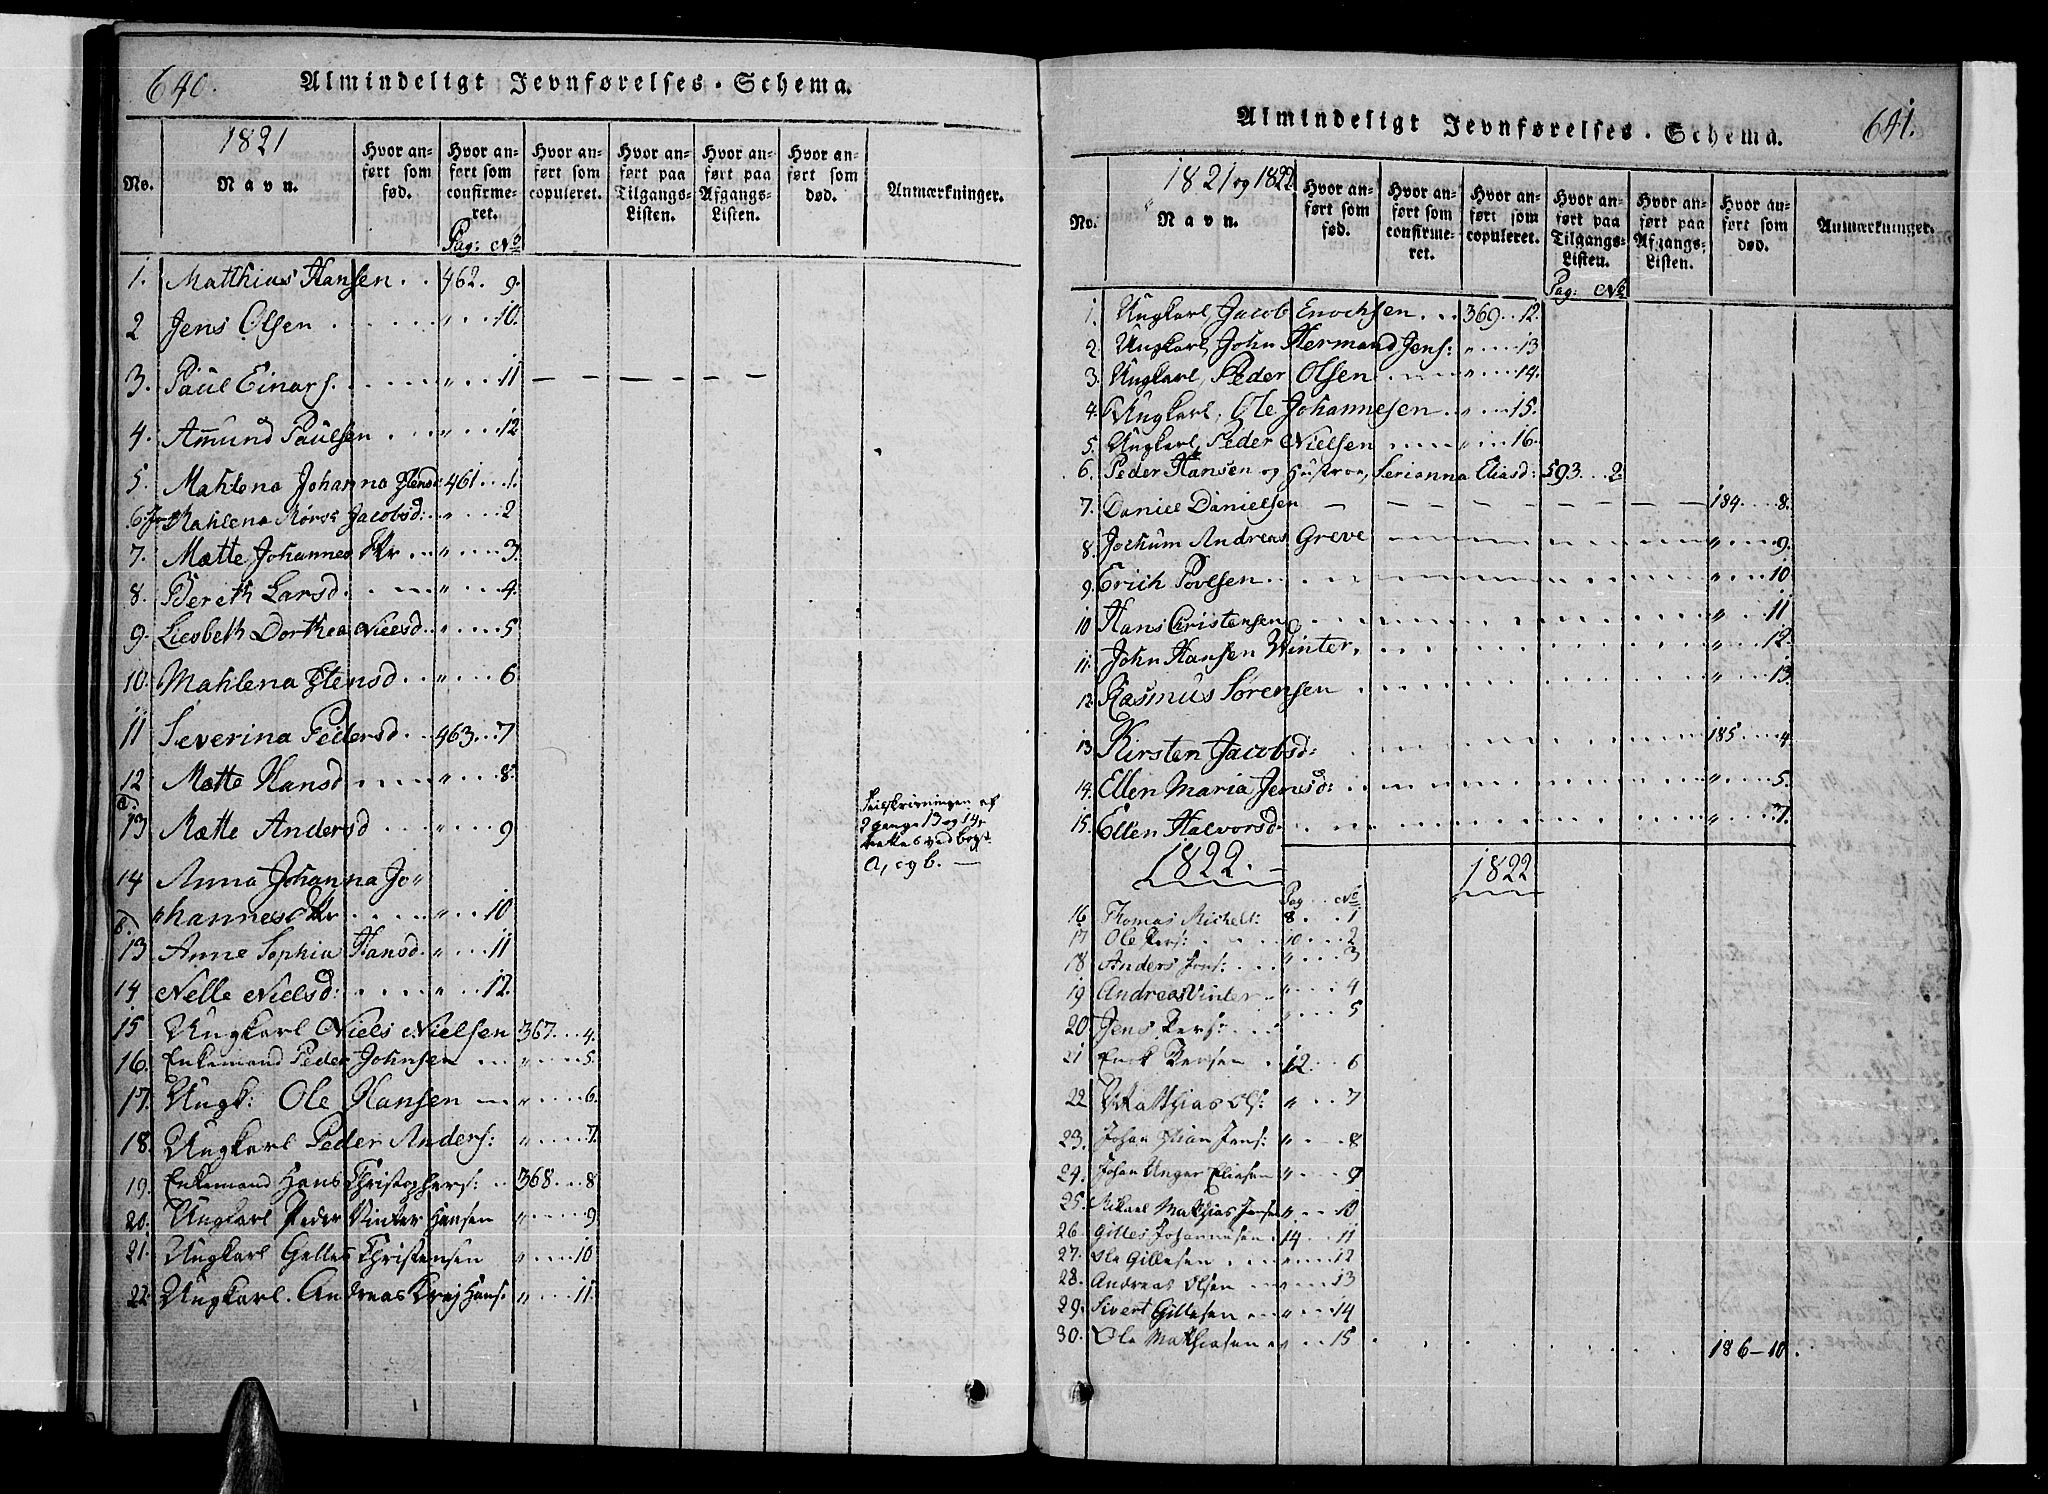 640.
Almindeligt Jevnførelses-Schema.
1821
No.
Navn.
Hvor anført som fød.
Hvor anført som confirmeret.
Hvor anført som copuleret.
Hvor anført paa Tilgangs-Listen.
Hvor anført paa Afgangs-Listen.
Hvor anført som død.
Anmærkninger.
Pag: No
1. Matthias Hansen . . 462. 9.
2 Jens Olsen . . . . . " . . 10.
3. Paul Einars. . . . . " . . 11 — — — — — —
4. Amund Paulsen . . . " . . 12
5. Mahlena Johanna Stensd: 461 . . 1.
6. Mahlena Jacobsd: . " . . . 2
7. Mætte Johannes . . " . . . 3.
8. Bereth Larsd. . . . " . . . 4.
9. Liesbeth Dorthea Nielsd. . " . . . 5
10. Mahlena Stensd . . " . . . 6
11 Severina Pedersd. . . 463. . 7
12 Mætte Hansd . . . . " . . . 8.
a. 13 Mætte Andersd . . . . . 9
Feilskrivningen af
2 gange 13 og 14
rettes ved bogst.
a, og b. —
14 Anna Johanna Jo"
"hannes . . . . " . . 10
b. 13 Anne Sophia Hansd. " . . 11
14 Nelle Nielsd: . . . . " . . 12.
15 Ungkarl Niels Nielsen 367. . . 4.
16. Enkemand Peder Johnsen . . . . 5.
17. Ungk: Ole Hansen — " . . . 6.
18. Ungkarl Peder Anders: " . . . 7.
19. Enkemand Hans Christophers: . . 368. . . 8
20. Ungkarl Peder Vinter Hansen " . . . . 9
21. Ungkarl Gelles Christensen " . . . . 10
22. Ungkarl. Andreas Hans: " . . . 11.
641.
Almindeligt Jevnførelses-Schema.
1821 og 1822
No.
Navn.
Hvor anført som fød.
Hvor anført som confirmeret.
Hvor anført som copuleret.
Hvor anført paa Tilgangs-Listen.
Hvor anført paa Afgangs-Listen.
Hvor anført som død.
Anmærkninger.
Pag: No
1. Ungkarl, Jacob Enochsen . . . 369 . . 12.
2. Ungkarl, John Hermand Jens: " . . . . 13
3. Ungkarl, Peder Olsen . . . . " . . . 14.
4. Ungkarl, Ole Johannesen . . " . . . 15.
5. Ungkarl, Peder Nielsen . . . " . . . 16.
6. Peder Hansen og Hustroe, Serianna Eliasd: 593. . . 2
7. Daniel Danielsen — — — — — 184. . . . 8.
8. Jochum Andreas Greve — — — — " . . . 9.
9. Erich Povelsen . . . . . . . " . . . 10
10 Hans Christensen . . . . . . " . . . 11
11. John Hansen Winter. . . . . . " . . . 12.
12. Rasmus Sørensen . . . . . . " . . . 13.
13. Kirsten Jacobsd: . . . . . . 185 . . . 4
14. Ellen Maria Jensd: . . . . . " . . . 5.
15. Ellen Halvorsd. . . . . . . " . . . 7.
1822. 1822
Pag. No
16 Thomas Michels: 8. . . 1
17 Ole Pers: . . . 10 . . . 2
18 Anders Jens: . . . " . . . 3
19 Andreas Vinter . . " . . . 4
20. Jens Pers: . . . . . . . 5
21 Erick Persen . . 12 . . 6
22 Matthias Ols: " . . . 7
23. Johan Jens: " . . . 8
24. Johan Unger Eliesen " . . . 9
25. Mikael Mathias Jensen " . . 10
26. Gilles Johannesen . 14 . . 11
27. Ole Gillesen . . . . . . 12
28. Andreas Olsen . . . . . 13
29. Sivert Gillesen . . " . . . 14
30. Ole Mathiasen . . . . 15 . . . . . . 186–10.